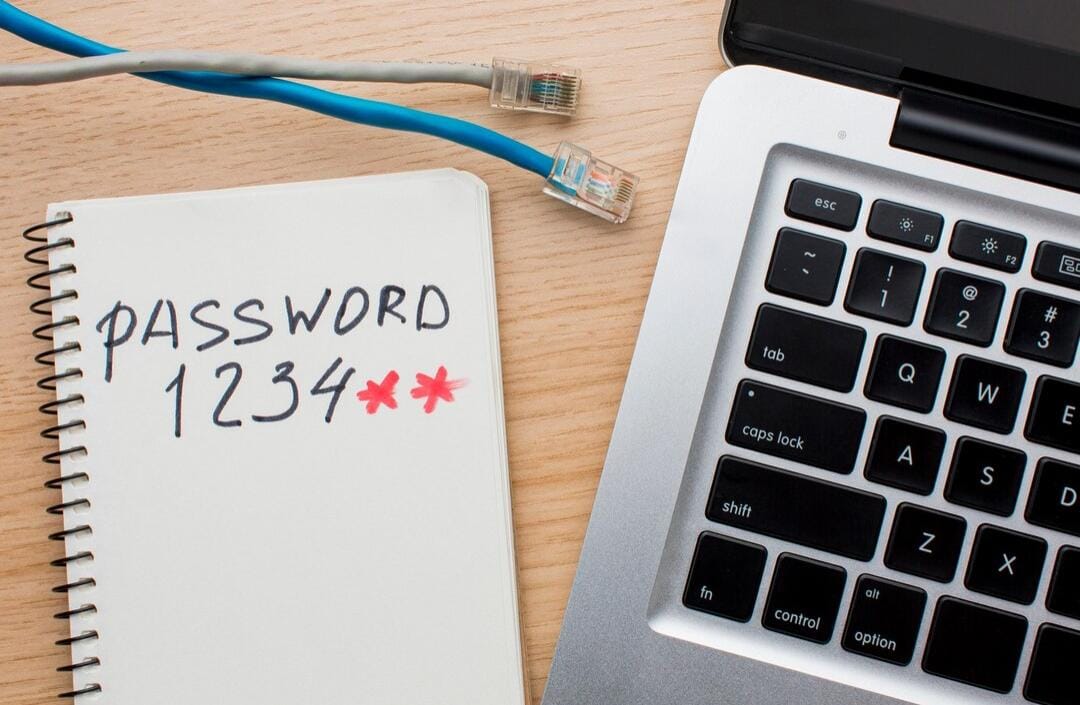 PASSWORD
1234**
esc
F1
F2
~
`
!
1
@
2
#
3
tab
Q
W
E
caps lock
A
S
D
shift
Z
X
fn
control
alt
option